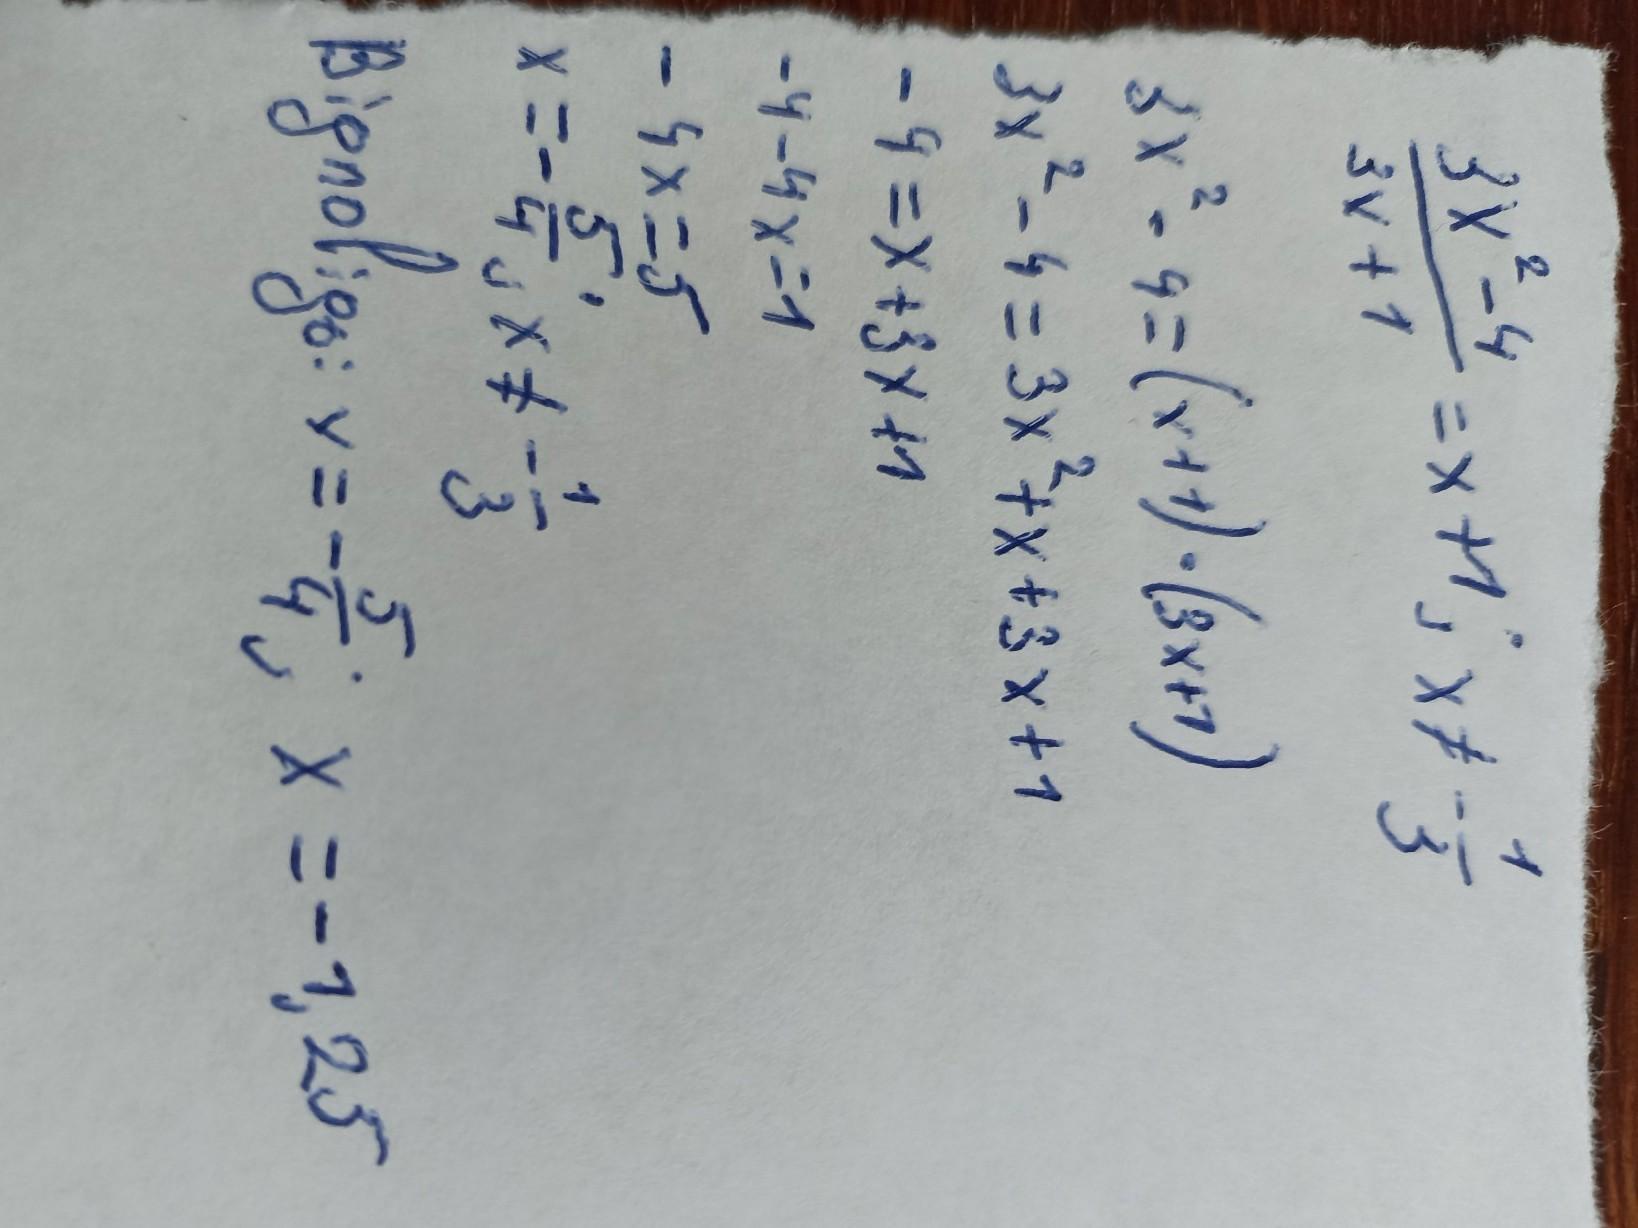 3x² - 4 / 3x + 1 = x + 1; x ≠ - 1/3
3x² - 4 = (x + 1) · (3x + 1)
3x² - 4 = 3x² + x + 3x + 1
- 4 = x + 3x + 1
- 4 - 4x = 1
- 4x = 5
x = - 5/4; x ≠ - 1/3
Bignoligo: x = - 5/4; x = - 1,25